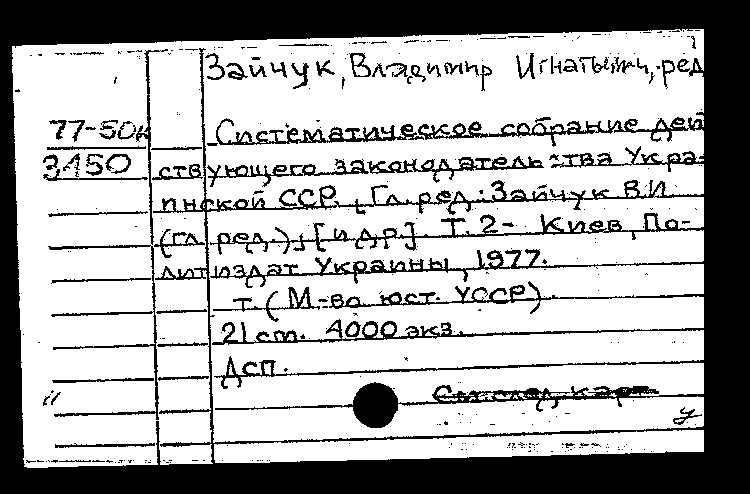 Зайчук, Владимир Игнатьевич, ред
77-50к Систематическое собрание дей
3450 ствующего законодательства Укра-
инской ССР. [Гл. ред.: Зайчук В.И.
(гл. ред.), [и др.]. Т. 2- Киев, По-
литиздат Украины, 1977.
т. (М-во юст. УССР).
21 cm. 4000 экз.
Дсп.
См. след. карт.
У